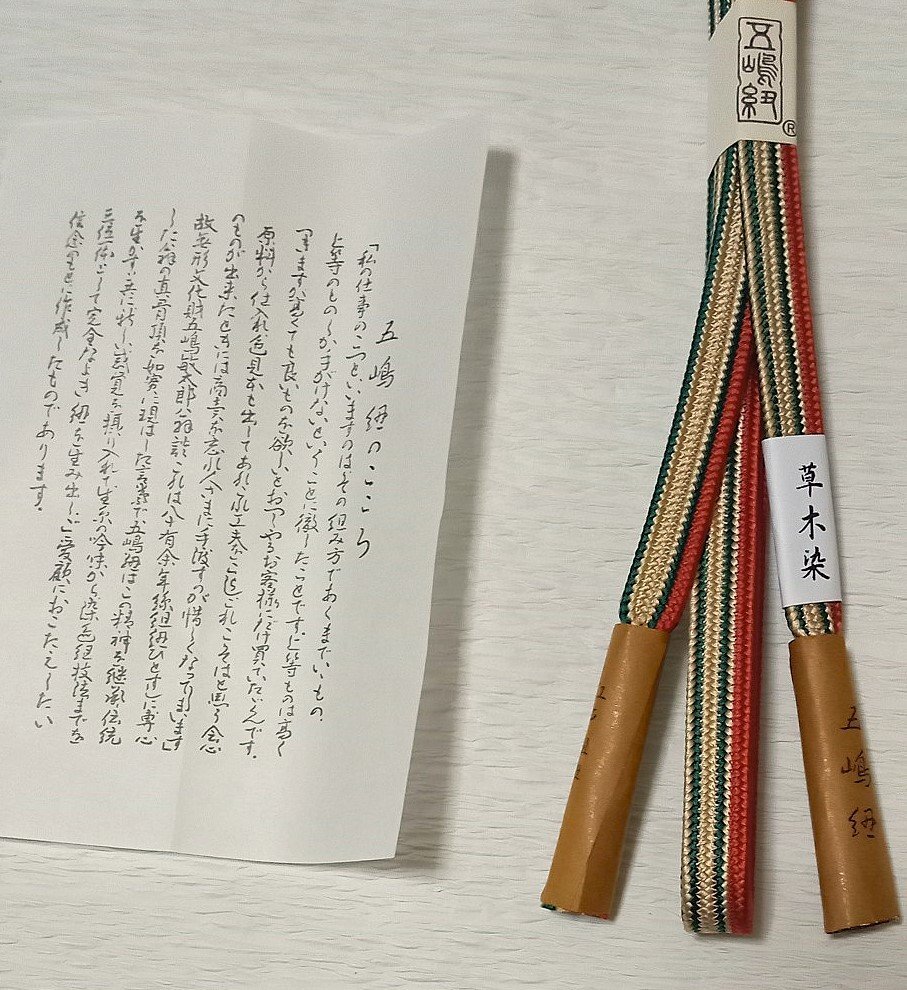 五嶋紐のこころ
「私の仕事のこつといいますのはその組み方であくまでいいもの、
上等のものしか手がけないということに徹したことです。上等ものは高く
つきますが高くても良いものを欲しいとおっしゃるお客様にだけ買っていただくんです。
原料から仕入れ色見本も出してあれこれ工夫をこらしこれこそはと思う会心
のものが出来たときには商売を忘れ人さまに手渡すのが惜しくなってしまいます」
故無形文化財五嶋敏太郎翁談 これは八十有余年組紐ひとすじに専心
した翁の真骨頂を如実に現はした言葉で五嶋紐はこの精神を継承伝統
を生かすと共に新しい感覚を採り入れて生糸の吟味から染色組技法までを
三位一体として完全なよき紐を生み出しご愛顧におこたえしたい
信念のもとに作成したものであります。
五嶋紐
®
草木染
五嶋紐